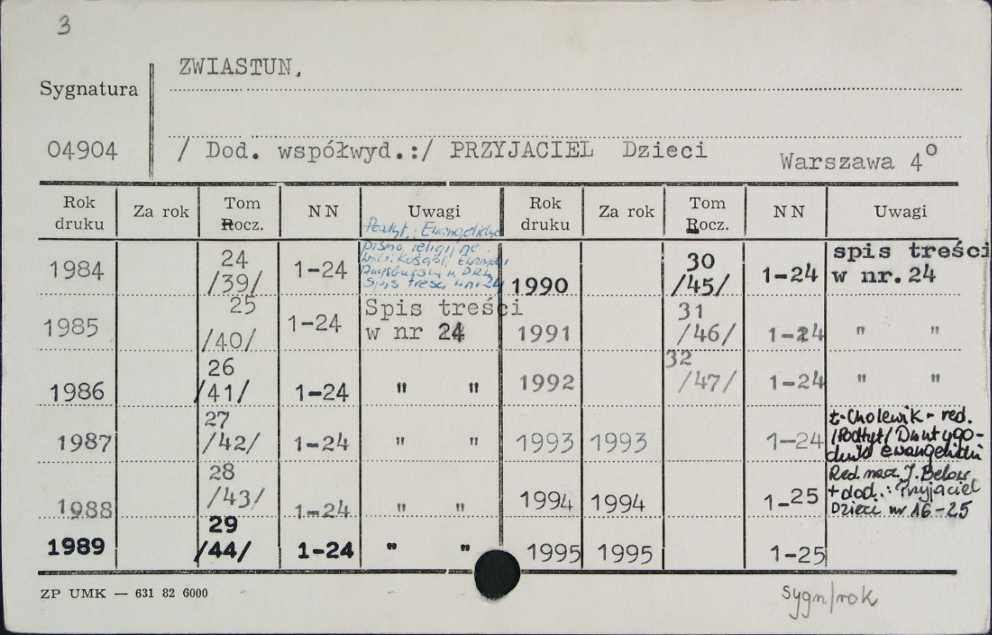 3
ZWIASTUN.
Sygnatura
04904 / Dod. współwyd.:/ PRZYJACIEL Dzieci Warszawa 4°
Rok druku Za rok Tom Rocz. NN Uwagi Rok druku Za rok Tom Rocz. NN Uwagi
Podtyt.: Ewangelickie
pismo religijne
Spis treści w nr 24
1984 24 /39/ 1-24
1985 25 /40/ 1-24 Spis treści w nr 24
1986 26 /41/ 1-24 " "
1987 27 /42/ 1-24 " "
1988 28 /43/ 1-24 " "
1989 29 /44/ 1-24 " "
1990 30 /45/ 1-24 spis treści w nr.24
1991 31 /46/ 1-24 " "
1992 32 /47/ 1-24 " "
1993 1993 1-24 t-Cholewik - red.
/Podtyt/ Dwutygo-
dnik ewangelicki
1994 1994 1-25 Red. nacz. J. Below
+ dod.: Przyjaciel
Dzieci nr 16-25
1995 1995 1-25
ZP UMK — 631 82 6000
sygn/rok